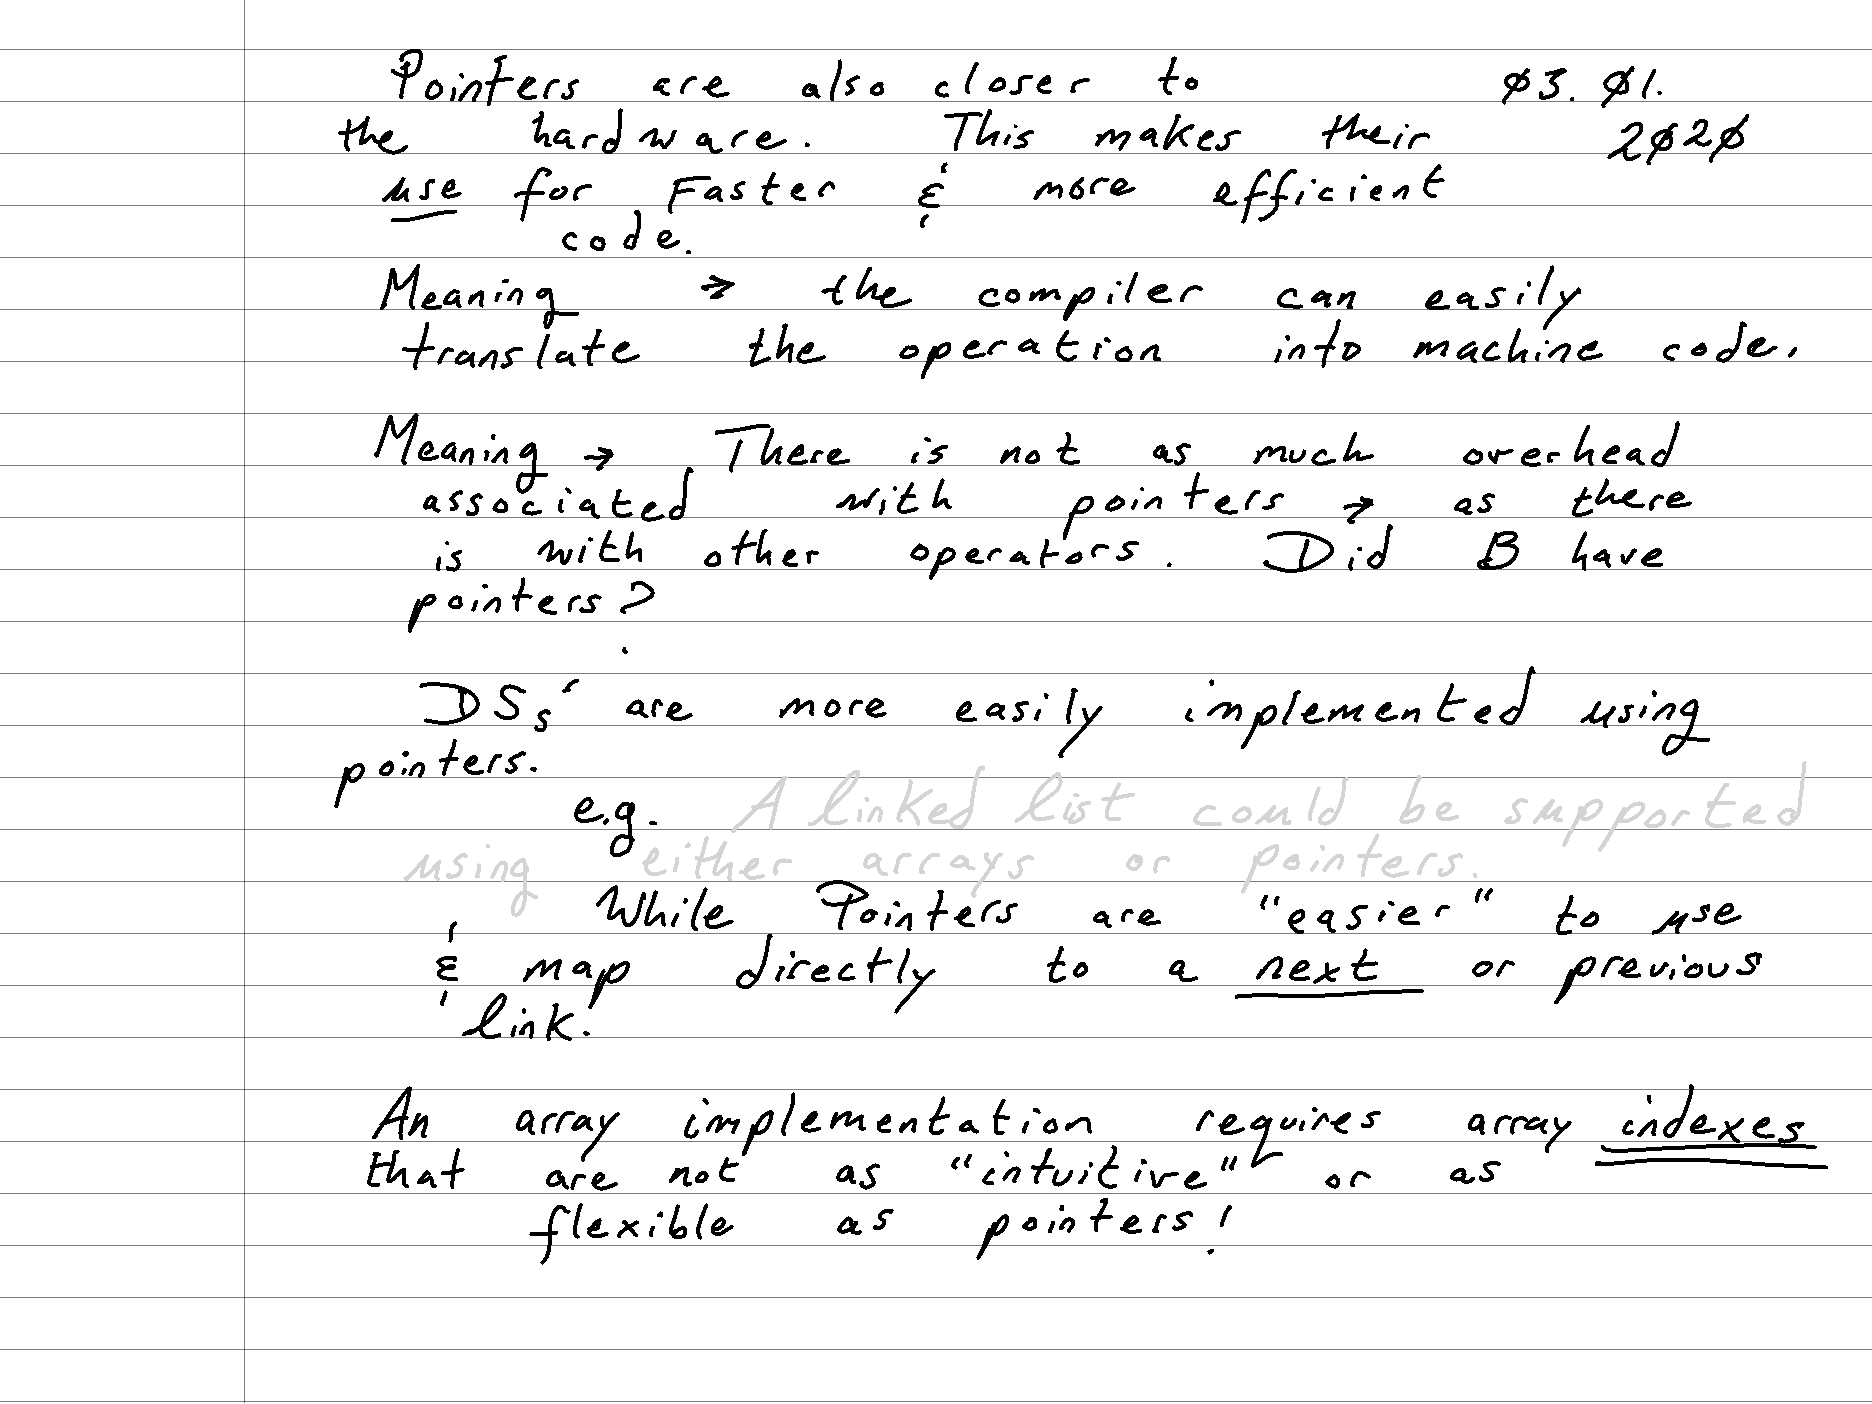 Pointers are also closer to ø3. ø1.
the hardware. This makes their 2ø2ø
use for Faster & more efficient
code.
Meaning → the compiler can easily
translate the operation into machine code.
Meaning → There is not as much overhead
associated with pointers → as there
is with other operators. Did B have
pointers?
DSs' are more easily implemented using
pointers.
e.g. A linked list could be supported
using either arrays or pointers.
While Pointers are "easier" to use
& map directly to a next or previous
link.
An array implementation requires array indexes
that are not as "intuitive" or as
flexible as pointers!